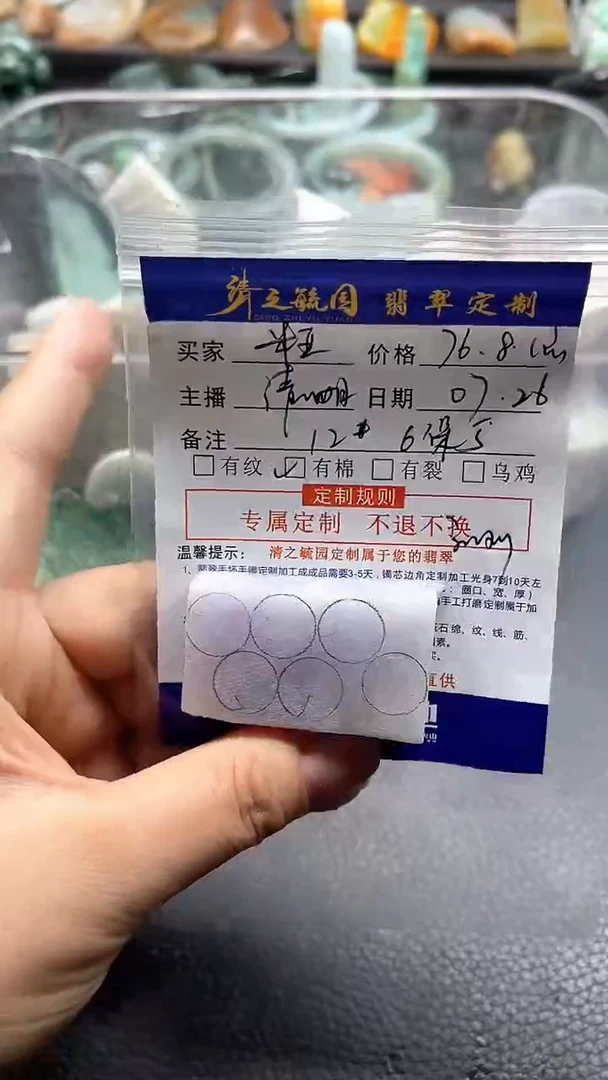 清之毓园 翡翠定制
买家 价格 76.8.
主播 清 明 日期 07.26
备注 12# 6
有纹 ✓有棉 有裂 乌鸡
定制规则
专属定制 不退不换
温馨提示: 清之毓园定制属于您的翡翠
1、翡翠手坯手镯定制加工成成品需要3-5天,镯芯边角定制加工光身7到10天左
圈口、宽、厚)
手工打磨定制属于加
石绵、纹、线、筋、
素。
直供